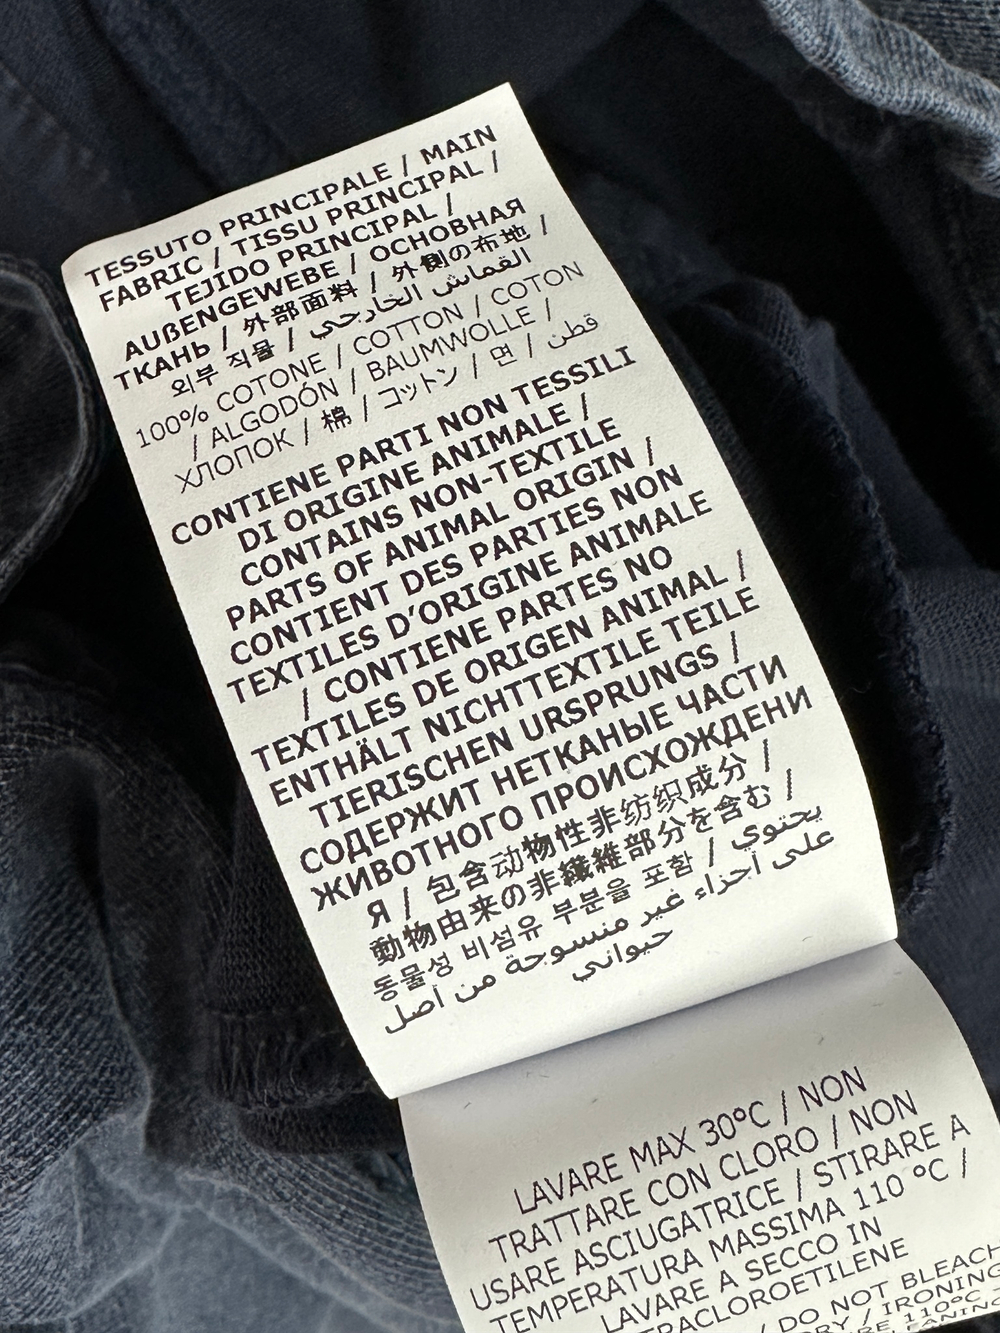 TESSUTO PRINCIPALE / MAIN
FABRIC / TISSU PRINCIPAL /
TEJIDO PRINCIPAL /
AUßENGEWEBE / ОСНОВНАЯ
ТКАНЬ / 外部面料 / 外側の布地 /
외부 직물 / القماش الخارجي
100% COTONE / COTTON / COTON
/ ALGODÓN / BAUMWOLLE /
ХЛОПОК / 棉 / コットン / 면 / قطن
CONTIENE PARTI NON TESSILI
DI ORIGINE ANIMALE /
CONTAINS NON-TEXTILE
PARTS OF ANIMAL ORIGIN /
CONTIENT DES PARTIES NON
TEXTILES D'ORIGINE ANIMALE
/ CONTIENE PARTES NO
TEXTILES DE ORIGEN ANIMAL /
ENTHÄLT NICHTTEXTILE TEILE
TIERISCHEN URSPRUNGS /
СОДЕРЖИТ НЕТКАНЫЕ ЧАСТИ
ЖИВОТНОГО ПРОИСХОЖДЕНИ
Я / 包含动物性非纺织成分 /
動物由来の非繊維部分を含む /
동물성 비섬유 부분을 포함 / يحتوي
على أجزاء غير منسوجة من أصل
حيواني
LAVARE MAX 30°C / NON
TRATTARE CON CLORO / NON
USARE ASCIUGATRICE / STIRARE A
TEMPERATURA MASSIMA 110 °C /
LAVARE A SECCO IN
TRACLOROETILENE
/ DO NOT BLEACH
DRY / IRONING
110°C